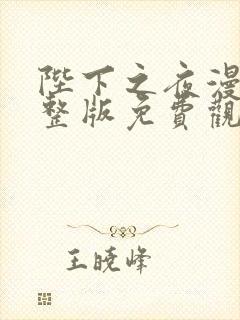 陛下之夜漫
整版免費觀
王曉峰